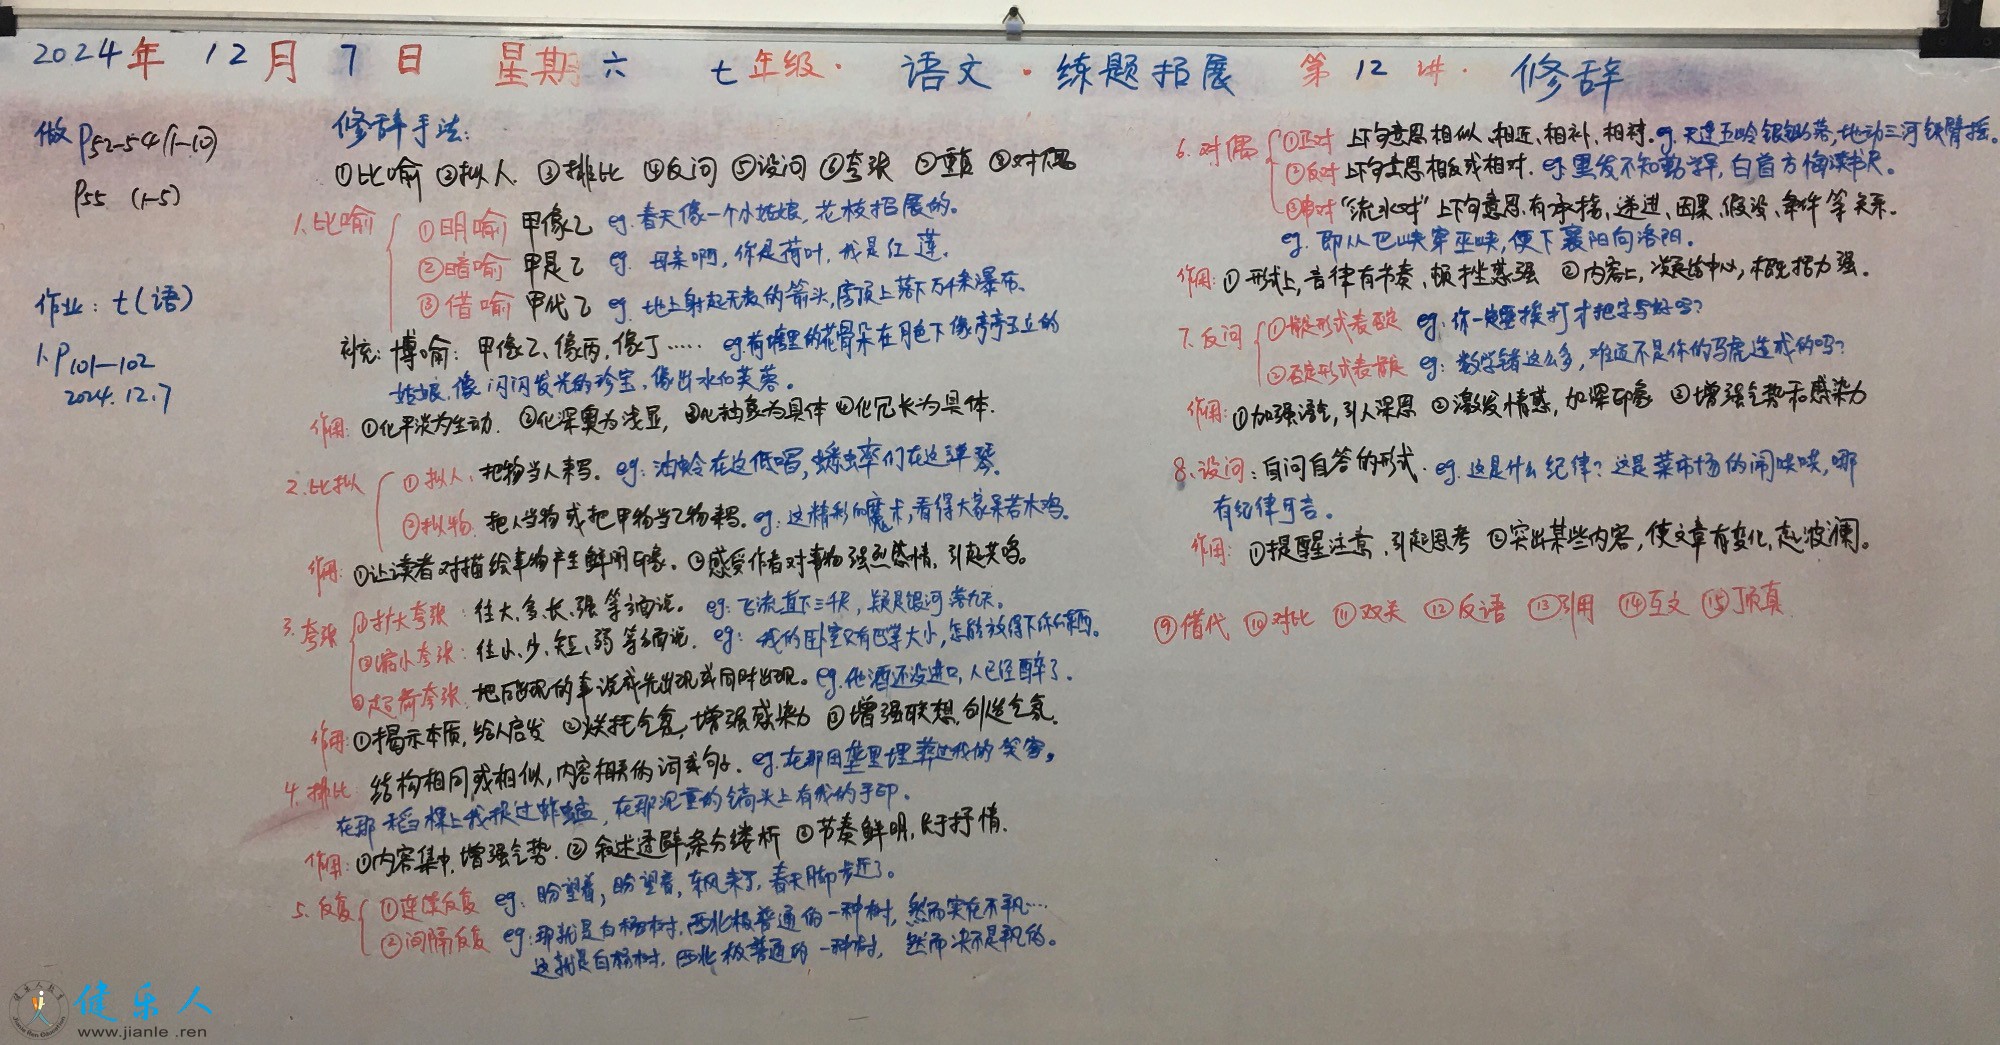 2024年 12月 7日 星期六 七年级· 语文·练题拓展 第12讲· 修辞
做P52-54(1-10)
P55 (1-5)
作业：七(语)
1.P101-102
2024.12.7
修辞手法:
①比喻 ②拟人 ③排比 ④反问 ⑤设问 ⑥夸张 ⑦ ⑧对偶
1.比喻
①明喻 甲像乙 eg.春天像一个小姑娘，花枝招展的。
②暗喻 甲是乙 eg. 母亲啊，你是荷叶，我是红莲。
③借喻 甲代乙 eg. 地上射起无数的箭头，房顶上落下万千条瀑布。
补充：博喻：甲像乙、像丙，像丁…… eg.荷塘里的花骨朵在月色下像亭亭玉立的
姑娘，像闪闪发光的珍宝，像出水的芙蓉。
作用：①化平淡为生动. ②化深奥为浅显，③化抽象为具体 ④化冗长为具体.
2.比拟
①拟人、把物当人来写。eg：油蛉在这低唱，蟋蟀们在这弹琴。
②拟物. 把人当物或把甲物当乙物来写。eg：这精彩的魔术，看得大家呆若木鸡。
作用：①让读者对描绘事物产生鲜明印象。②感受作者对事物强烈感情，引起共鸣。
3.夸张
①扩大夸张：往大、多、长、强等方面说。eg：飞流直下三千尺，疑是银河落九天。
②缩小夸张：往小、少、短、弱等方面说. eg：我的卧室只有巴掌大小，怎能放得下你的东西。
③超前夸张. 把后出现的事说成先出现或同时出现。eg.他酒还没进口，人已经醉了.
作用：①揭示本质，给人启发 ②烘托气氛，增强感染力 ③增强联想，创造气氛.
4.排比 结构相同或相似，内容相关的词或句子. eg.在那田垄里埋葬过我的笑容。
在那稻棵上我捉过蚱蜢，在那沉重的镐头上有我的手印.
作用：①内容集中，增强气势. ②叙述透辟，条分缕析 ③节奏鲜明，长于抒情.
5.反复
①连续反复 eg：盼望着，盼望着，东风来了，春天脚步近了。
②间隔反复 eg：那就是白杨树，西北极普通的一种树，然而实在不平凡…
这就是白杨树，西北极普通的一种树，然而决不是平凡的。
6.对偶
①正对 上下句意思相似、相近、相补、相衬。eg.天连五岭银锄落，地动三河铁臂摇。
②反对 上下句意思相反或相对. eg.黑发不知勤学早，白首方悔读书迟。
③串对“流水对”上下句意思，有承接、递进、因果、假设、条件等关系.
eg. 即从巴峡穿巫峡，便下襄阳向洛阳.
作用：①形式上，音律有节奏，顿挫感强 ②内容上，凝练集中，概括力强.
7.反问
①肯定形式表否定 eg：你一定要挨打才把字写好吗？
②否定形式表肯定 eg：数学错这么多，难道不是你的马虎造成的吗？
作用：①加强语气，引人深思 ②激发情感，加深印象 ③增强气势和感染力
8.设问：自问自答的形式. eg.这是什么纪律？这是菜市场的闹哄哄，哪
有纪律可言。
作用：①提醒注意，引起思考 ②突出某些内容，使文章有变化，起波澜。
⑨借代 ⑩对比 ⑪双关 ⑫反语 ⑬引用 ⑭互文 ⑮顶真
健乐人
www.jianle.ren